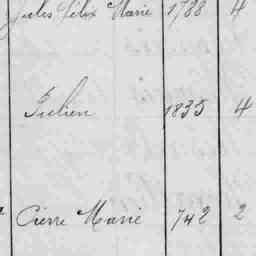 Jules Félix Marie 1788 4
Julien 1835 4
Pierre Marie 742 2